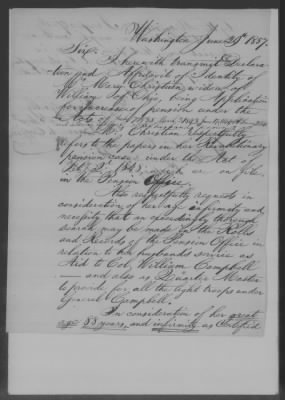 Washington June 29th 1857.
Sir,
I herewith transmit Declara-
tion and Affidavit of Identity of
Mrs Mary Christian widow of
William of Ohio, being Application
for increase of pension under the
Acts of
Mrs Christian respectfully
refers to the papers in her Revolutionary
pension case, under the Act of
Feby 2d 1848, which are on file
in the Pension Office.
Also respectfully requests in
consideration of her age infirmity and
necessity that an exceedingly thorough
search may be made in the Rolls
and Records of the Pension Office in
relation to her husbands service as
Aid to Col. William Campbell
and also as Quarter Master
to provide for all the light troops under
General Campbell.
In consideration of her great
age 88 years, and infirmity as Certified